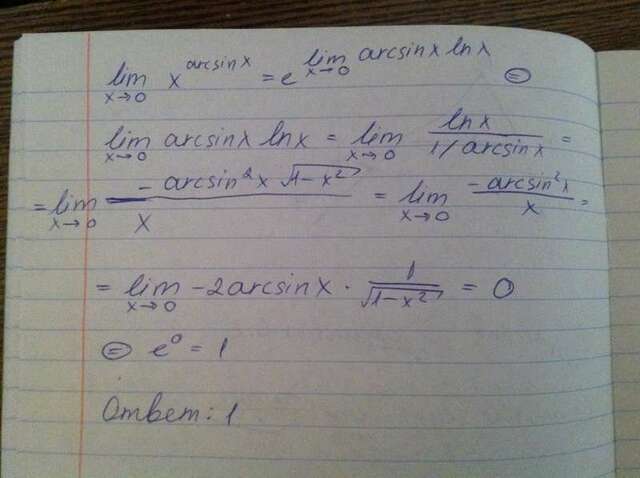 lim x→0 x^arcsinx = e^lim x→0 arcsinx lnx ⊜
lim x→0 arcsinx lnx = lim x→0 lnx / (1/arcsinx) =
= lim x→0 -arcsin²x √(1-x²) / x = lim x→0 -arcsin²x / x =
= lim x→0 -2arcsinx · 1/√(1-x²) = 0
⊜ e⁰ = 1
Ответ: 1